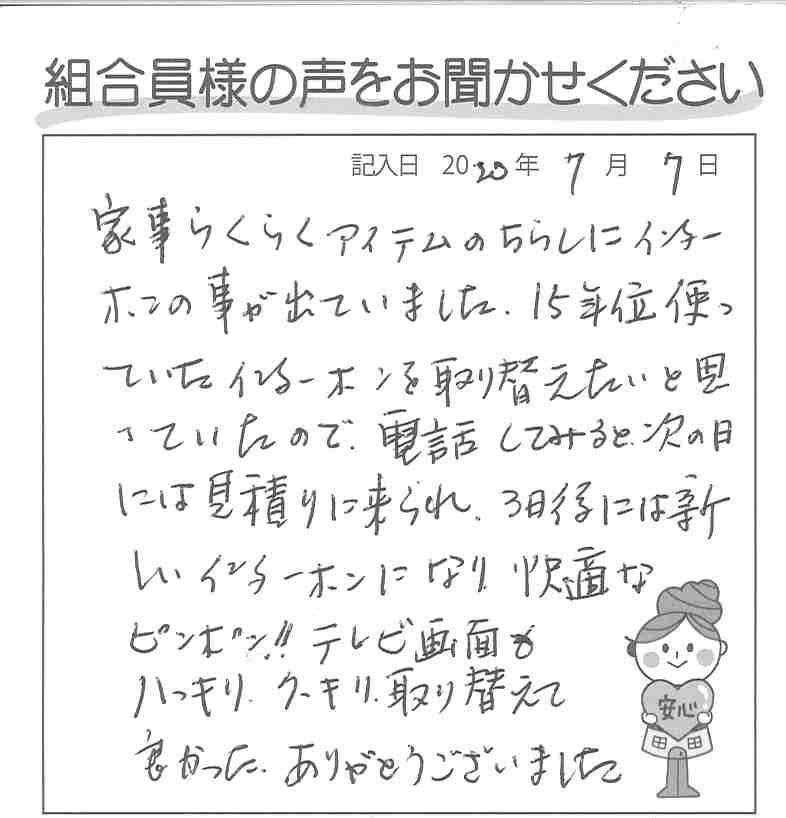 組合員様の声をお聞かせください
記入日 2020年 7月 7日
家事らくらくアイテムのちらしにインター
ホンの事が出ていました。15年位使っ
ていたインターホンを取り替えたいと思
っていたので、電話してみると、次の日
には見積りに来られ、3日後には新
しいインターホンになり、快適な
ピンポン!!テレビ画面も
ハッキリ、クッキリ、取り替えて
良かった。ありがとうございました
安心